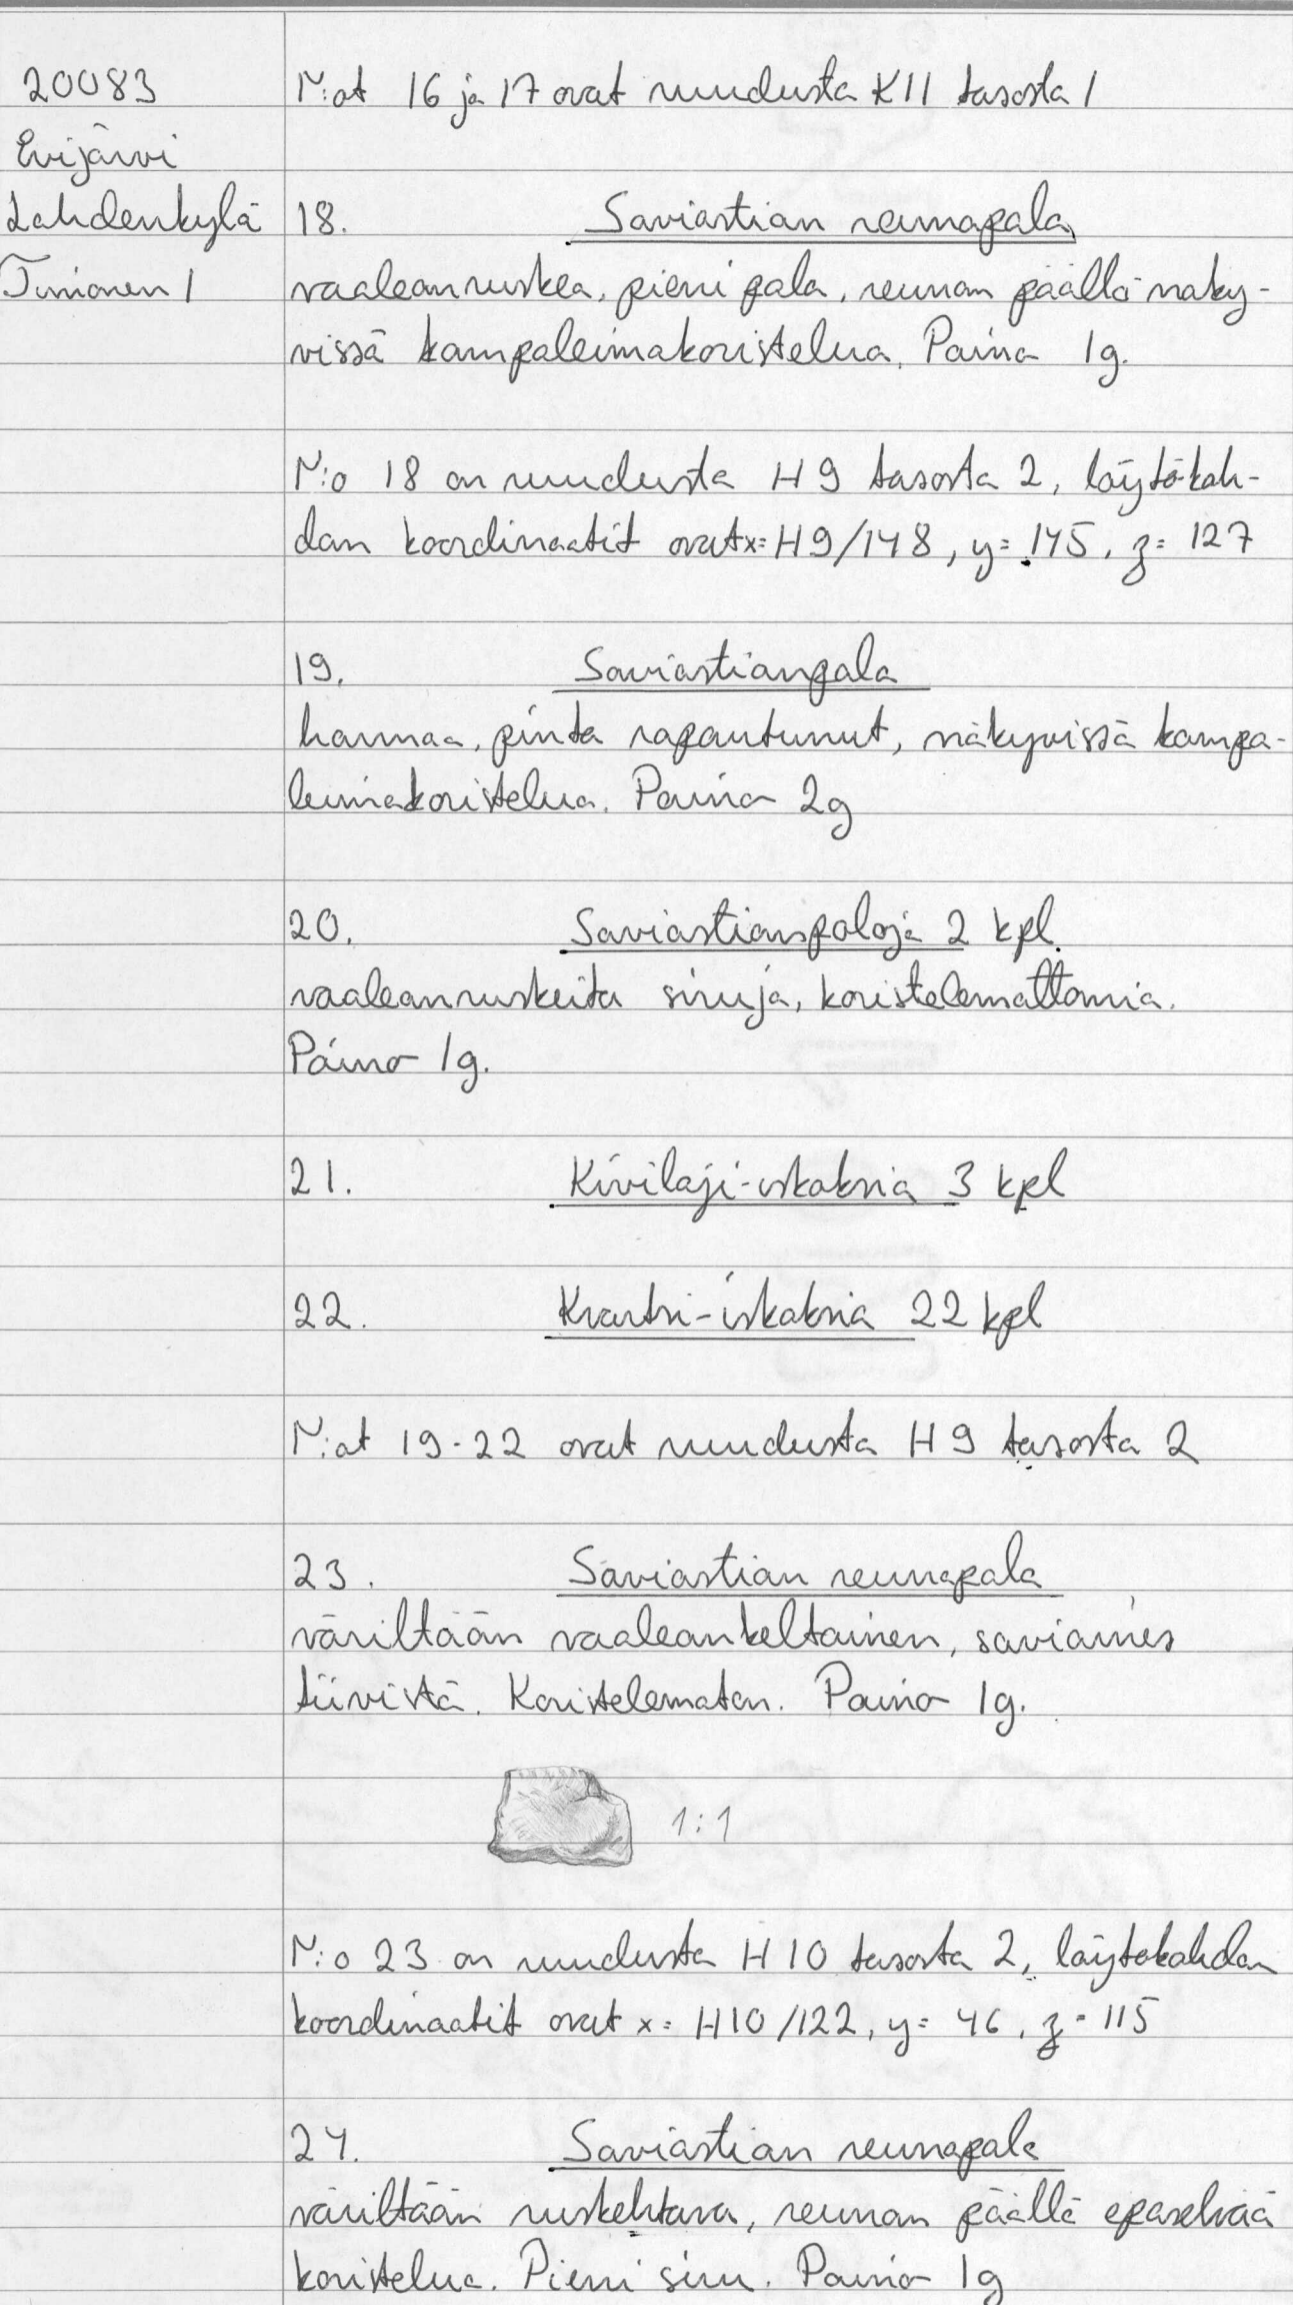 20083
Evijärvi
Lahdenkylä
Timonen 1
N:ot 16 ja 17 ovat ruudusta K11 tasosta 1
18. Saviastian reunapala
vaaleanruskea, pieni pala, reunan päällä näky-
vissä kampaleimakoristelua. Paino 1g.
N:o 18 on ruudusta H9 tasosta 2, löytökoh-
dan koordinaatit ovat x=H9/148, y= 145, z= 127
19. Saviastianpala
harmaa, pinta rapautunut, näkyvissä kampa-
leimakoristelua. Paino 2g
20. Saviastianpaloja 2 kpl
vaaleanruskeita siruja, koristelemattomia.
Paino 1g.
21. Kivilaji-iskoksia 3 kpl
22. Kvartsi-iskoksia 22 kpl
N:ot 19-22 ovat ruudusta H9 tasosta 2
23. Saviastian reunapala
väriltään vaaleankeltainen, saviaines
tiivistä. Koristelematon. Paino 1g.
1:1
N:o 23 on ruudusta H10 tasosta 2, löytökohdan
koordinaatit ovat x= H10/122, y= 46, z= 115
24. Saviastian reunapala
väriltään ruskehtava, reunan päällä epäselvää
koristelua. Pieni siru. Paino 1g